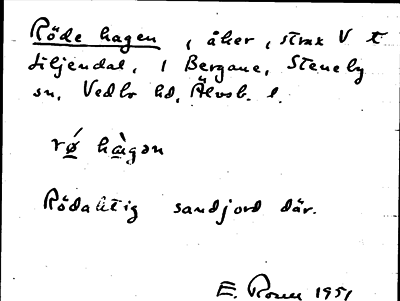 Röde hagen, åker, strax V t
Liljendal, 1 Bergane, Steneby
sn, Vedbo hd, Älvsb. l.
rǿ hàgən
Rödaktig sandjord där.
E. Rosen 1951